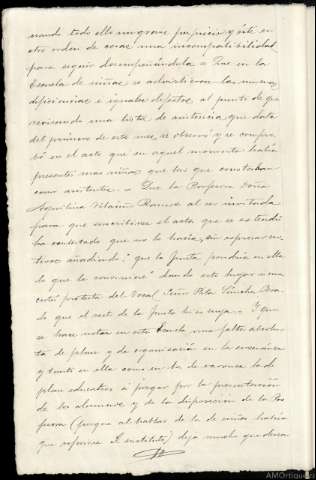 usando todo ello un grave perjuicio y este en
otro orden de cosas una incompatibilidad
para seguir desempeñándola = Que en la
Escuela de niñas se advirtieron las mismas
deficiencias e iguales defectos, al punto de que
revisando una lista de asistencia que data
del primero de este mes, se observó y se compro
bó en el acto que en aquel momento había
presentes mas niñas que las que constaban
como asistentes. = Que la Profesora Doña
Ramos al ser invitada
para que suscribiera el acta que se extendi
ha contestado que no lo hacía, sin expresar mo
tivos añadiendo "que la Junta pondría en ella
lo que la conviniera" dando este lugar a una
protesta del Vocal Señor Sánchez
do que el resto de la Junta Y que
se hace notar en esta Escuela una falta absolu
ta de plan y de organización en la enseñanza
y tanto en ella como en la de carece de
plan educativo á juzgar por la presentación
de los alumnos y de la disposición de la Pro
fesora (porque al hablar de la de niños había
que referirse al ) deja mucho que desear
AMOrtigueira